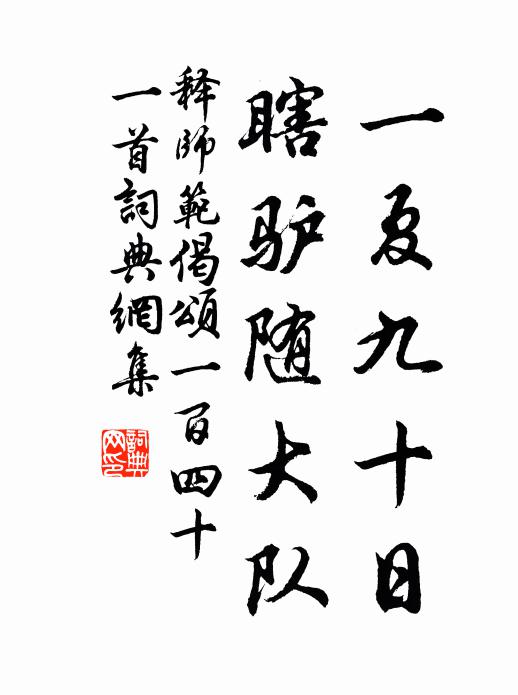 一夏九十日
瞎驴随大队
释師範偈頌一百四十
一首詞典網集
詞典网印